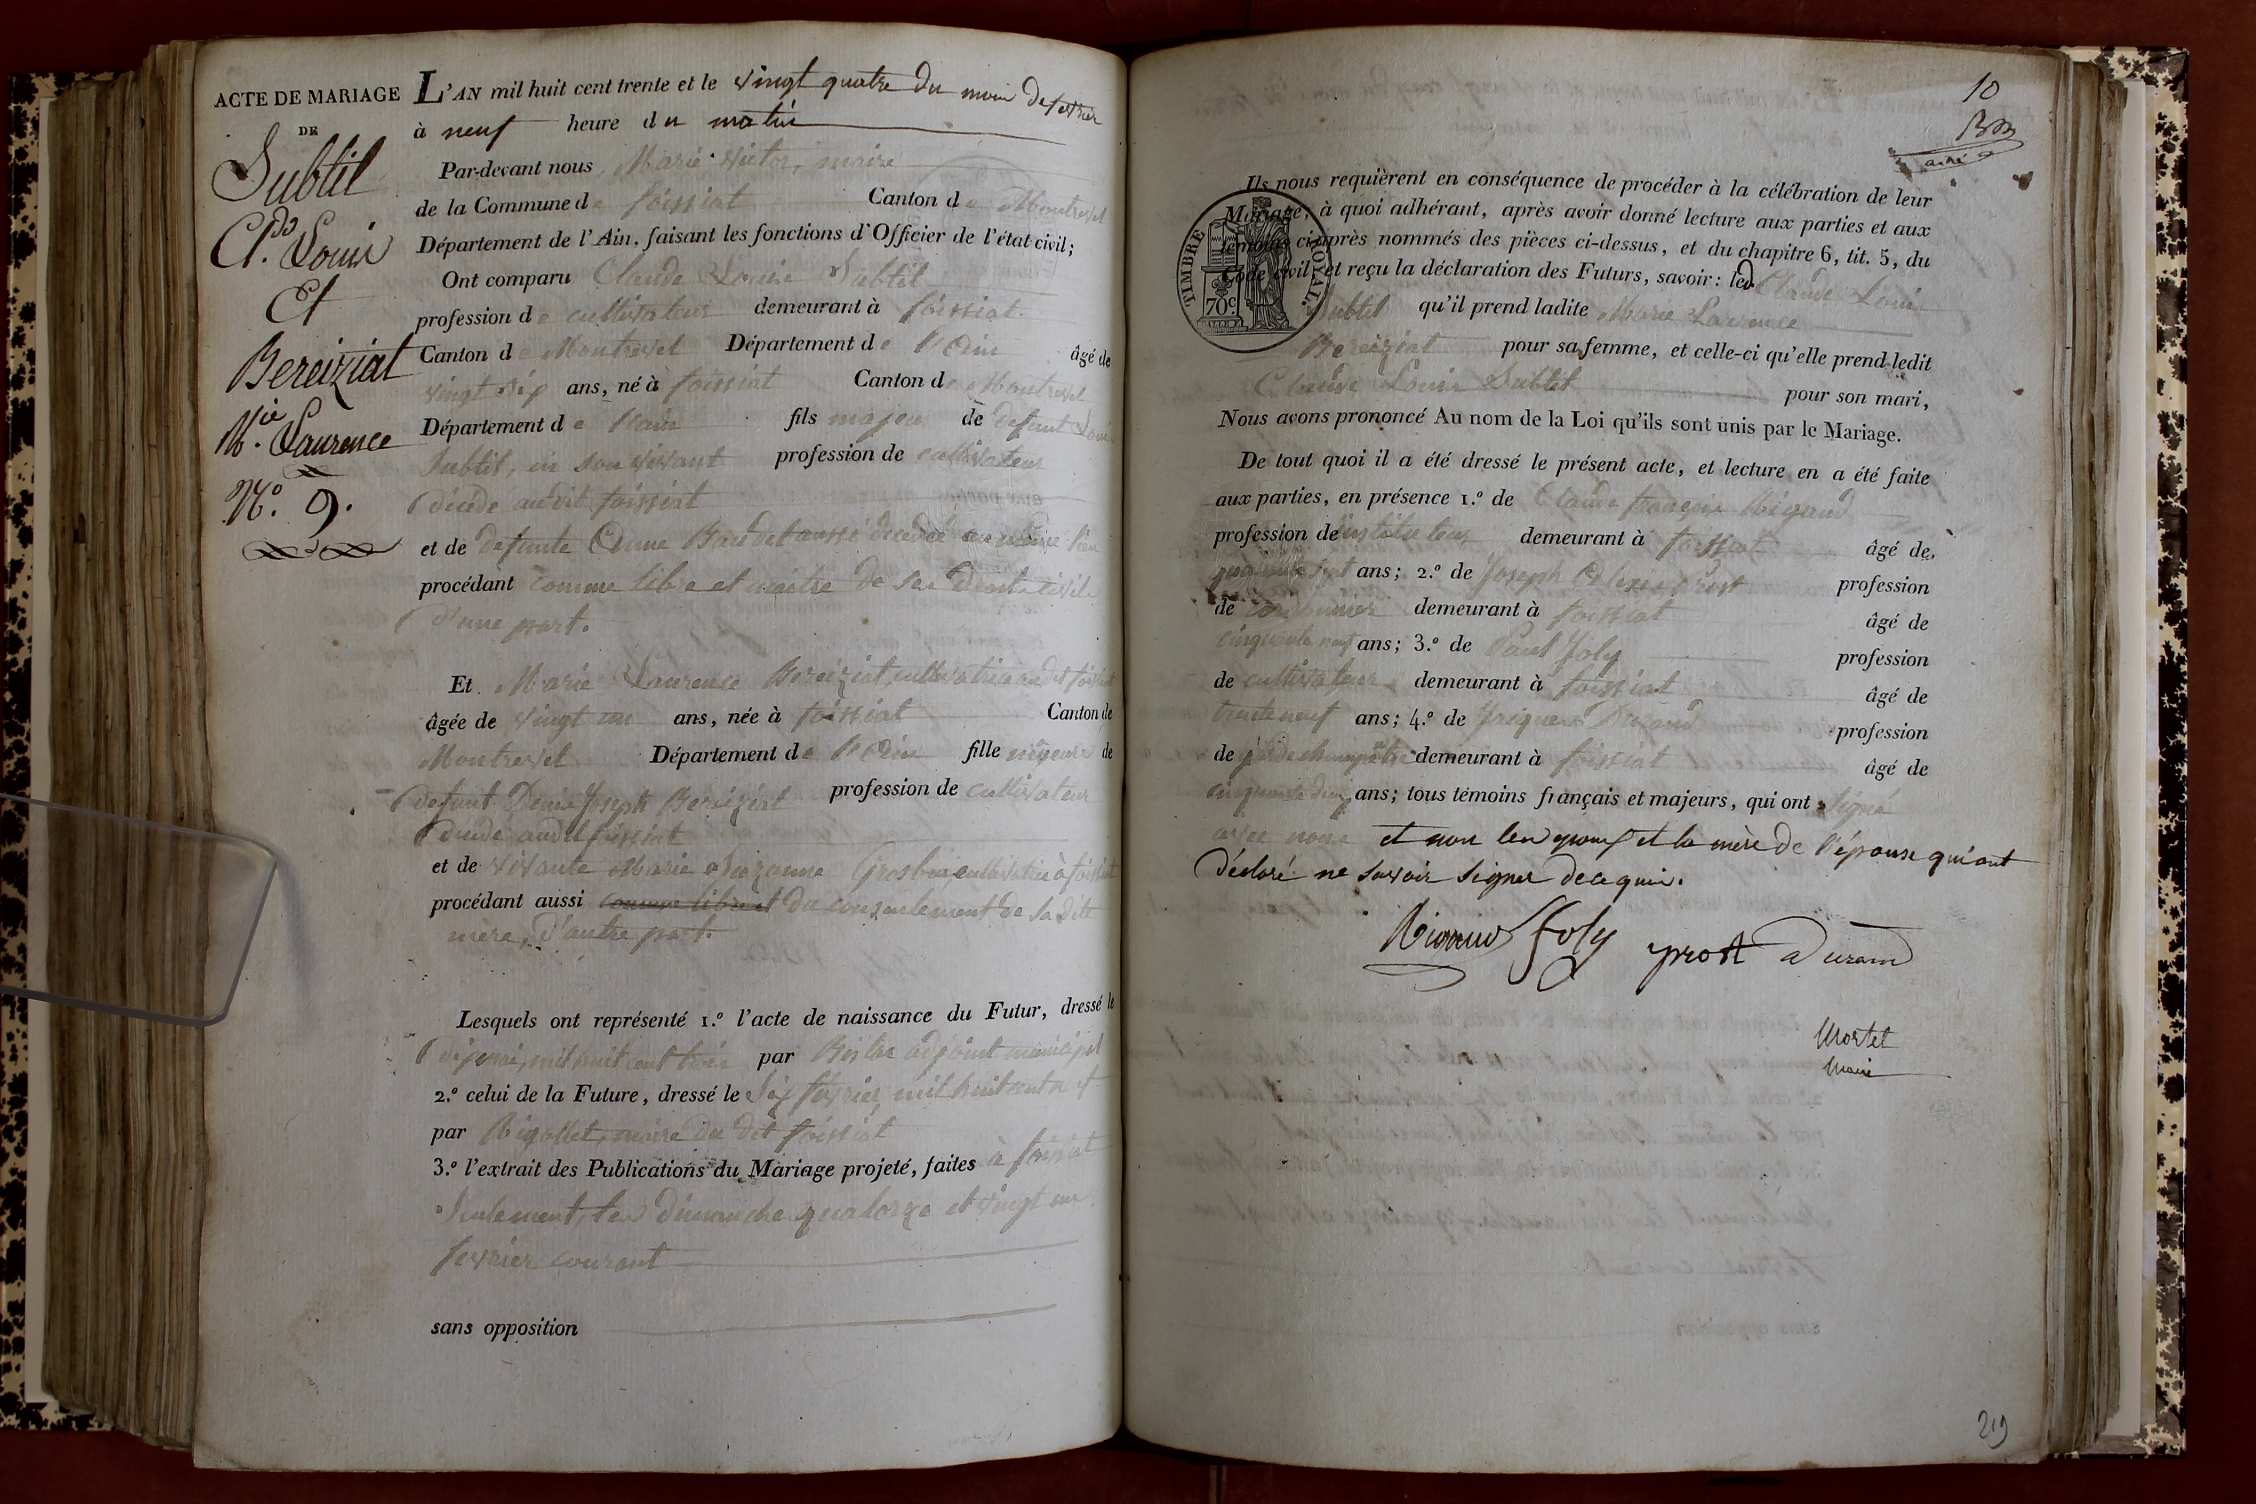 ACTE DE MARIAGE
DE
Subtil
Cl.de Louis
Et
Bereiziat
M.ie Laurence
N.o 9.
L'AN mil huit cent trente et le vingt quatre du mois de fevrier
à neuf heure du matin
Par-devant nous Marie Victor, maire
de la Commune de foissiat Canton de Montrevel
Département de l'Ain, faisant les fonctions d'Officier de l'état civil;
Ont comparu Claude Louis Subtil
profession de cultivateur demeurant à foissiat
Canton de Montrevel Département de l'ain âgé de
vingt six ans, né à foissiat Canton de Montrevel
Département de l'ain fils majeur de defunt Louis
Subtil, en son vivant profession de cultivateur
décédé audit foissiat
et de defunte Anne Baudet aussi décédée au même lieu
procédant comme libre et maitre de ses droits civils
d'une part.
Et Marie Laurence Bereiziat, cultivatrice audit foissiat
âgée de vingt un ans, née à foissiat Canton de
Montrevel Département de l'ain fille mineure de
defunt Denis Joseph Bereiziat profession de cultivateur
décédé audit foissiat
et de vivante Marie Suzanne Grosbuis, cultivatrice à foissiat
procédant aussi comme libre et du consentement de sa dite
mère, d'autre part.
Lesquels ont représenté 1.o l'acte de naissance du Futur, dressé le
mil huit cent trois par adjoint municipal
2.o celui de la Future, dressé le Six fevrier mil huit cent
par Rigollet, maire du dit foissiat
3.o l'extrait des Publications du Mariage projeté, faites à foissiat
Seulement, les dimanche quatorze et vingt un
fevrier courant
sans opposition
10
ainé
TIMBRE ROYAL.
70c
Ils nous requièrent en conséquence de procéder à la célébration de leur
Mariage, à quoi adhérant, après avoir donné lecture aux parties et aux
témoins ci-après nommés des pièces ci-dessus, et du chapitre 6, tit. 5, du
Code civil, et reçu la déclaration des Futurs, savoir: led Claude Louis
Subtil qu'il prend ladite Marie Laurence
Bereiziat pour sa femme, et celle-ci qu'elle prend ledit
Claude Louis Subtil pour son mari,
Nous avons prononcé Au nom de la Loi qu'ils sont unis par le Mariage.
De tout quoi il a été dressé le présent acte, et lecture en a été faite
aux parties, en présence 1.o de Claude françois Rigaud
profession de instituteur demeurant à foissiat âgé de
quarante sept ans; 2.o de Joseph Alexis Prost profession
de cordonnier demeurant à foissiat âgé de
cinquante neuf ans; 3.o de Paul Joly profession
de cultivateur demeurant à foissiat âgé de
trente neuf ans; 4.o de Durand profession
de garde champêtre demeurant à foissiat âgé de
cinquante deux ans; tous témoins français et majeurs, qui ont signé
avec nous et non les epoux et la mère de l'épouse qui ont
déclaré ne savoir signer de ce requis.
Rigaud Joly prost Durand
Mortel
Maire
219